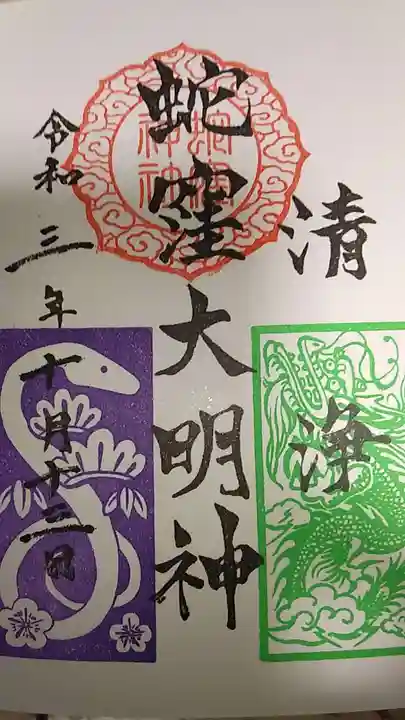 清浄
蛇窪大明神
令和三年十月十三日